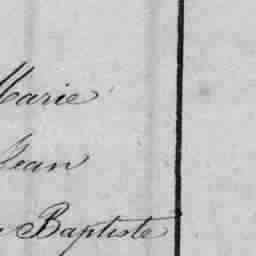 Marie
Jean
Baptiste